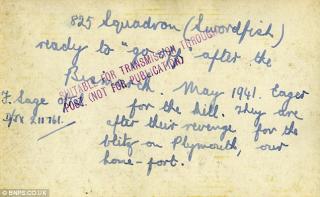 825 Squadron (Swordfish)
ready to "go off" after the
Bismarck. May 1941. Eager
for the kill. They are
after their revenge for the
blitz on Plymouth, our
home-port.
F. Sage
SUITABLE FOR TRANSMISSION THROUGH
POST. (NOT FOR PUBLICATION)
© BNPS.CO.UK